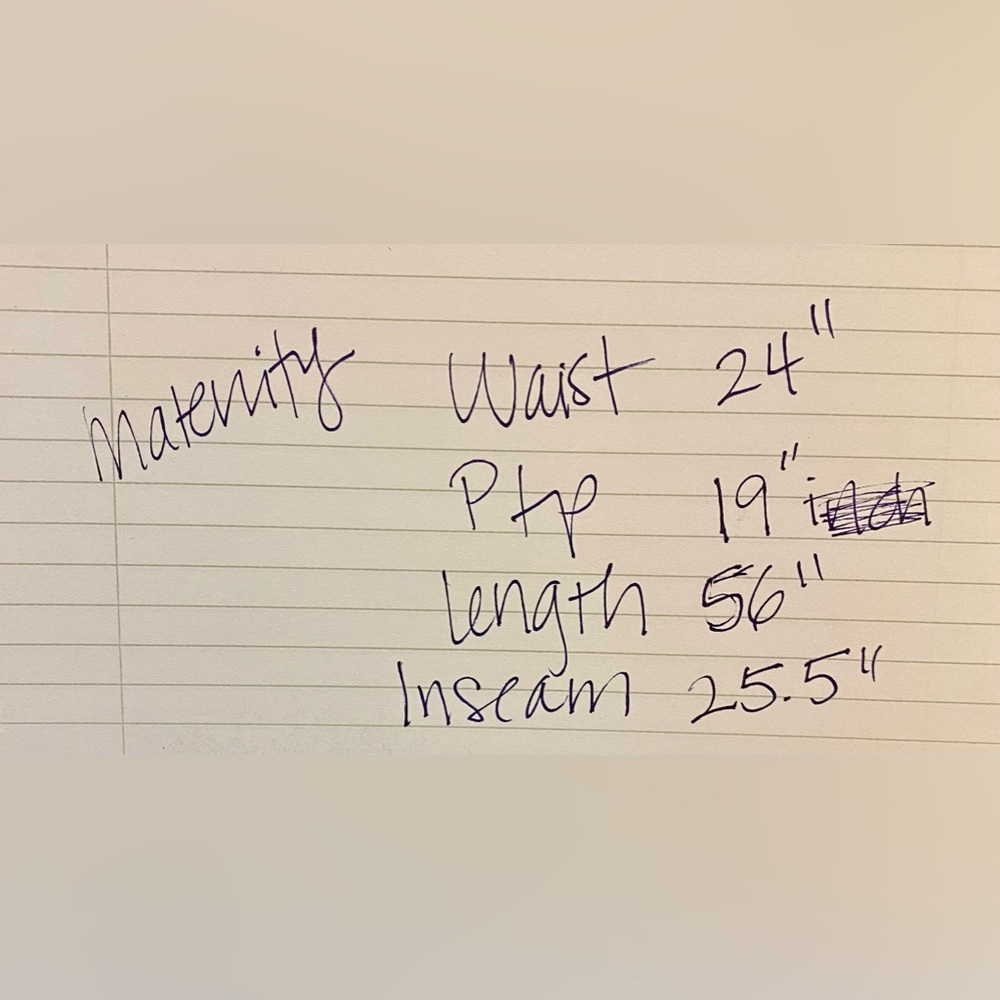 Maternity Waist 24"
Ptp 19"
length 56"
Inseam 25.5"